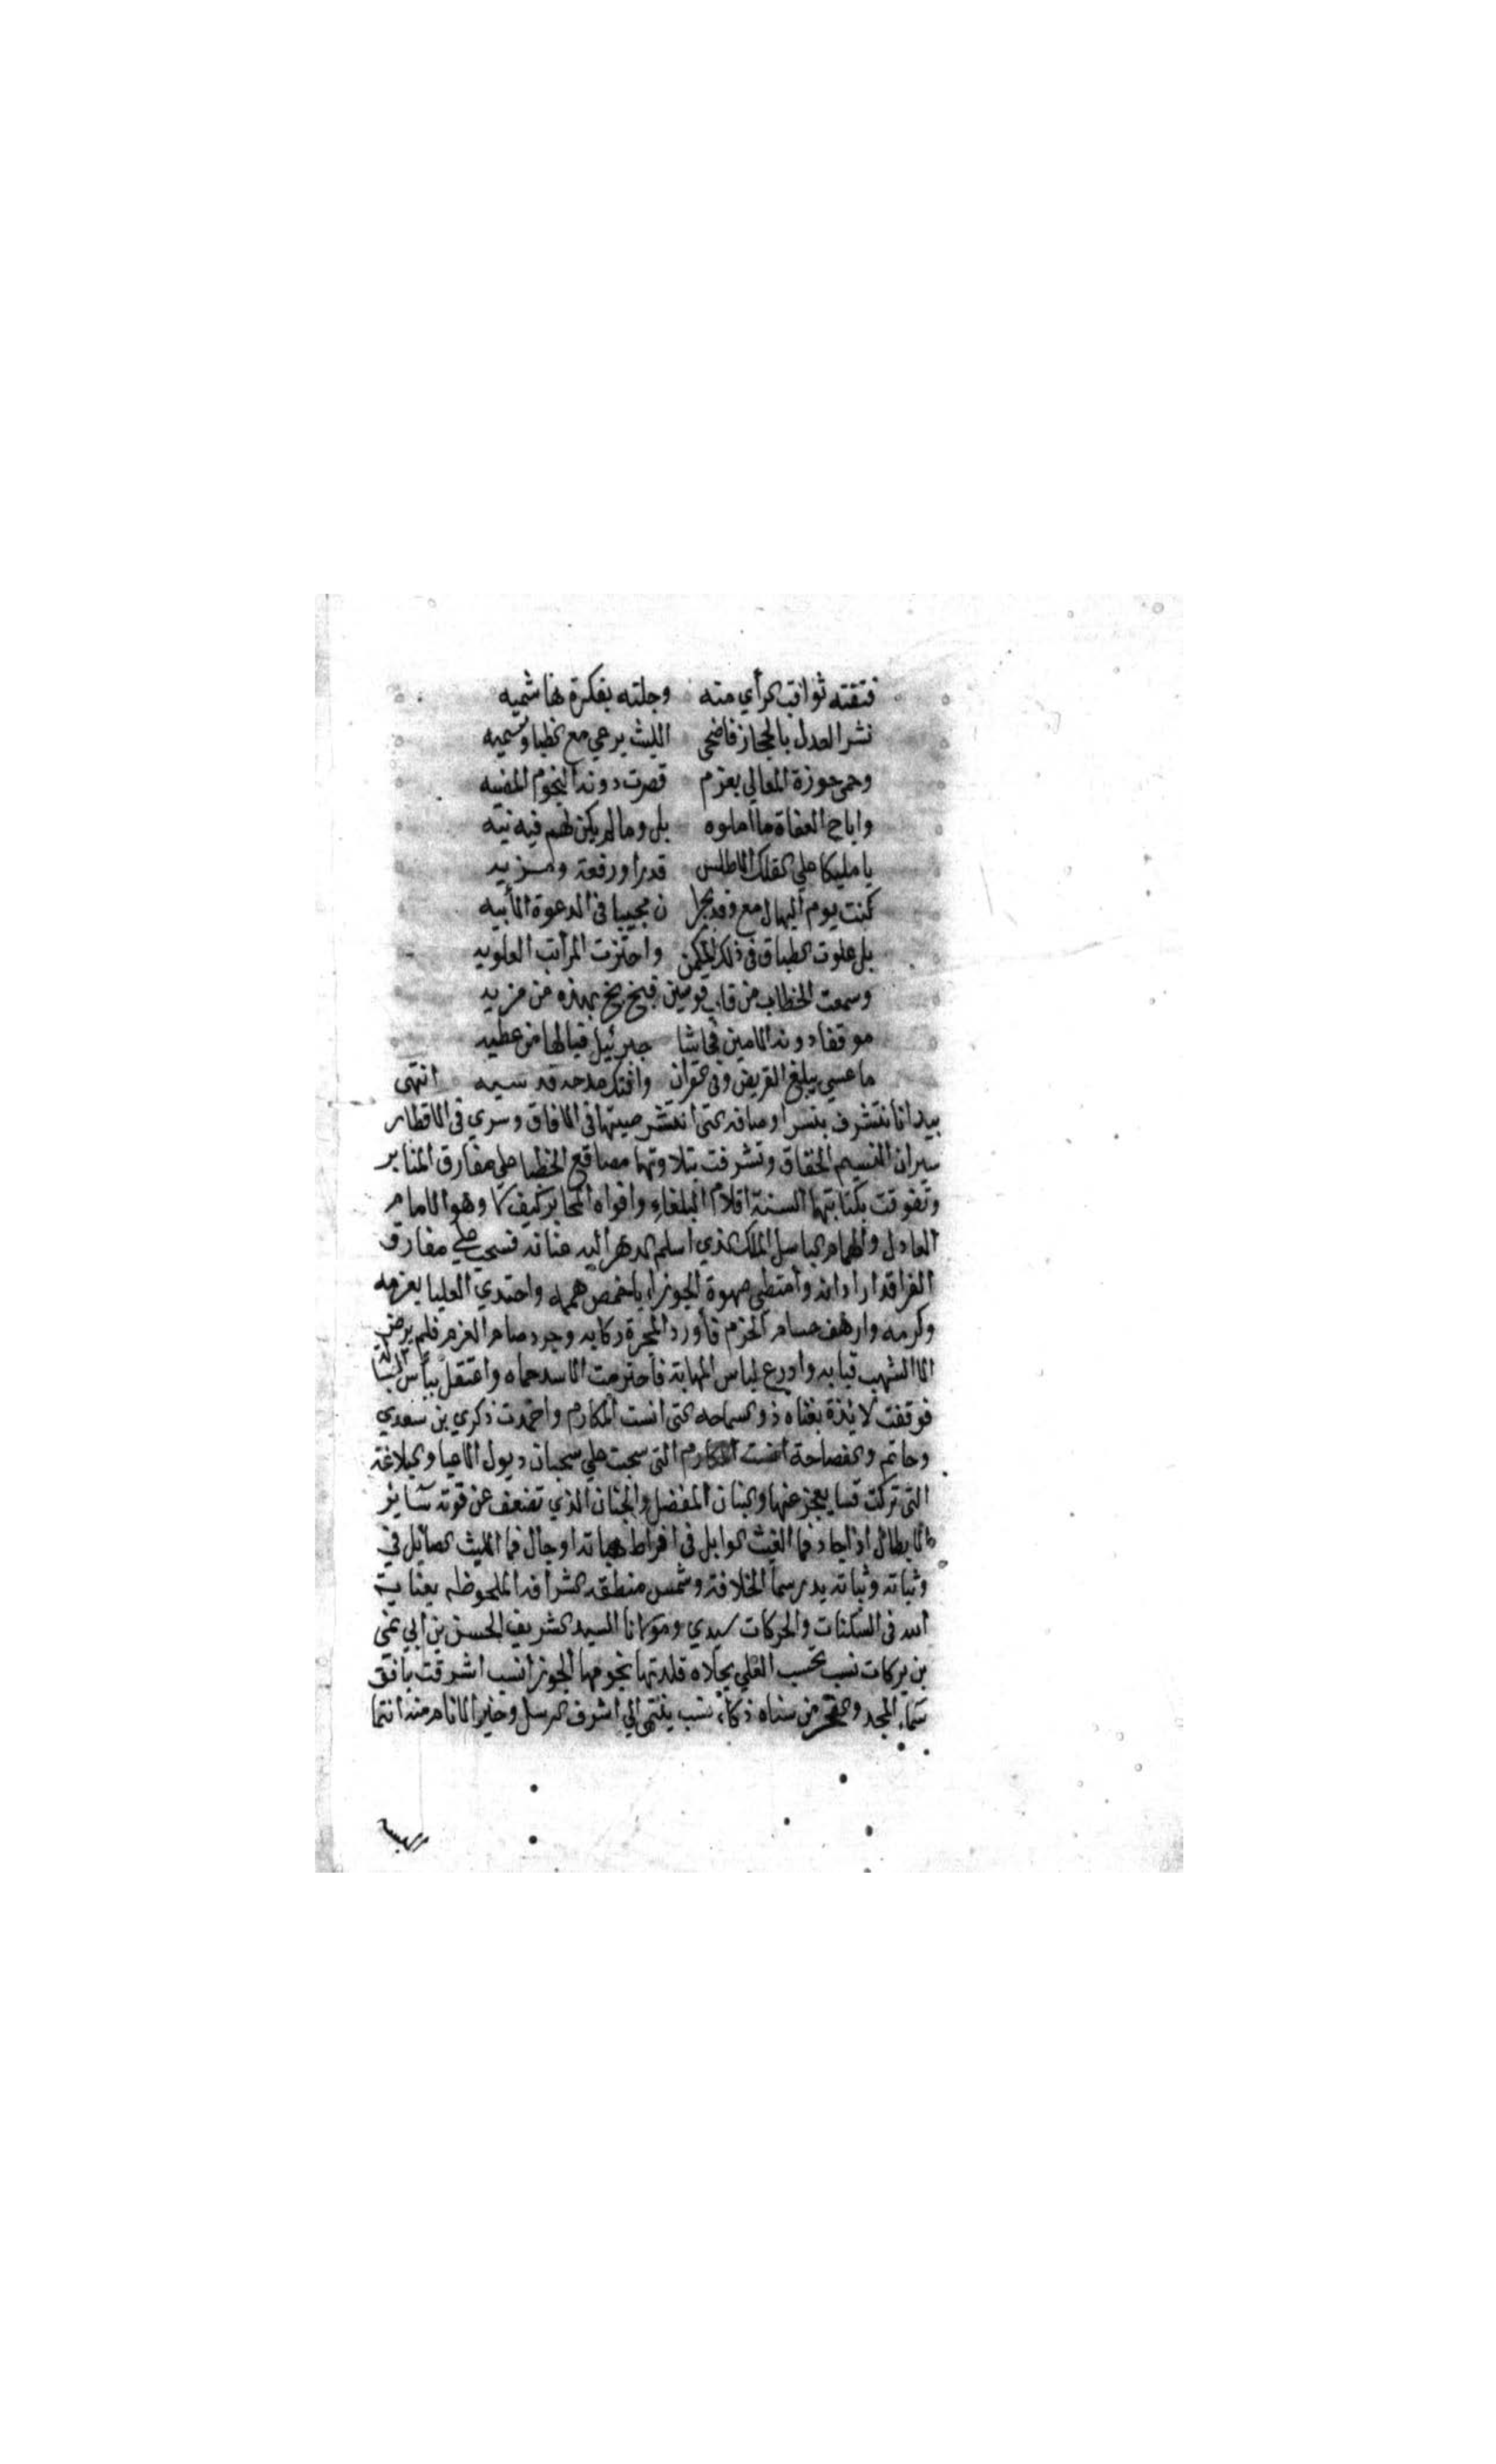 فتقته ثواقب الرأي منه وجلته بفكرة هاشميه
نشر العدل بالحجاز فاضحى الليث يرعي مع الظبا وسميه
وحمى حوزة المعالي بعزم قصرت دونه النجوم المضيه
واباح العفاة ما املوه بل وما لم يكن لهم فيه نيه
يا مليكا على الفلك الاطلس قدرا ورفعة ومزيه
كنت يوم البهال مع وفد نجرا ن مجيبا في الدعوة الأبيه
بل علوت الطباق في ذلك المكمن واحتزت المراتب العلويه
وسمعت الخطاب من قاب قوسين فبخ بخ بهذه من مزيه
موقفا دونه الامين تحاشا جبرئيل فيالها من عطيه
ما عسي يبلغ القريض وفي القران وافتك مدحة قدسيه انتهى
بيد انا نتشرف بنشر اوصافه التى انتشر صيتها في الافاق وسري في الاقطار
سيران النسيم الخفاق وتشرفت بتلاوتها مصاقع الخطبا على مفارق المنابر
وتفوقت بكتابتها السنة اقلام البلغاء وافواه المحابر كيف لا وهو الامام
العادل والهمام الباسل الملك الذي اسلم الدهر اليه عنانه فسحب على مفارق
الفراقد اردانه وامتطى صهوة الجوزاء باخمص هممه واحتدي العليا بعزمه
وكرمه وارهف حسام الحزم فأورد المجرة ركابه وجرد صارم العزم فلم يرض
الا الشهب قبابه وادرع لباس المهابة فاحترمت الاسد حماه واعتقل ببأس
فوقفت لائذة بفناه ذو السماحه التى انست المكارم واخمدت ذكري بن سعدي
وحاتم والفصاحة التى سحبت على سحبان ديول الاعيا والبلاغة
التى تركت قسا يعجز عنها والبنان المفضل والجنان الذي تضعف عن قوته سائر
الابطال اذا جاد فما الغيث الوابل في افراط هباته او جال فما الليث الصائل في
وثباته وثباته بدر سما الخلافة وشمس منطقة الشرافه الملحوظه بعناية
الله في السكنات والحركات سيدي ومولانا السيد الشريف الحسن بن ابي نمي
بن بركات نسب تحسب العلي بحلاه قلدتها نجومها الجوزا نسب اشرقت بافق
سماء المجد والفخر من سناه ذكاء نسب ينتهي الي اشرف الرسل وخير الانام منه انتما